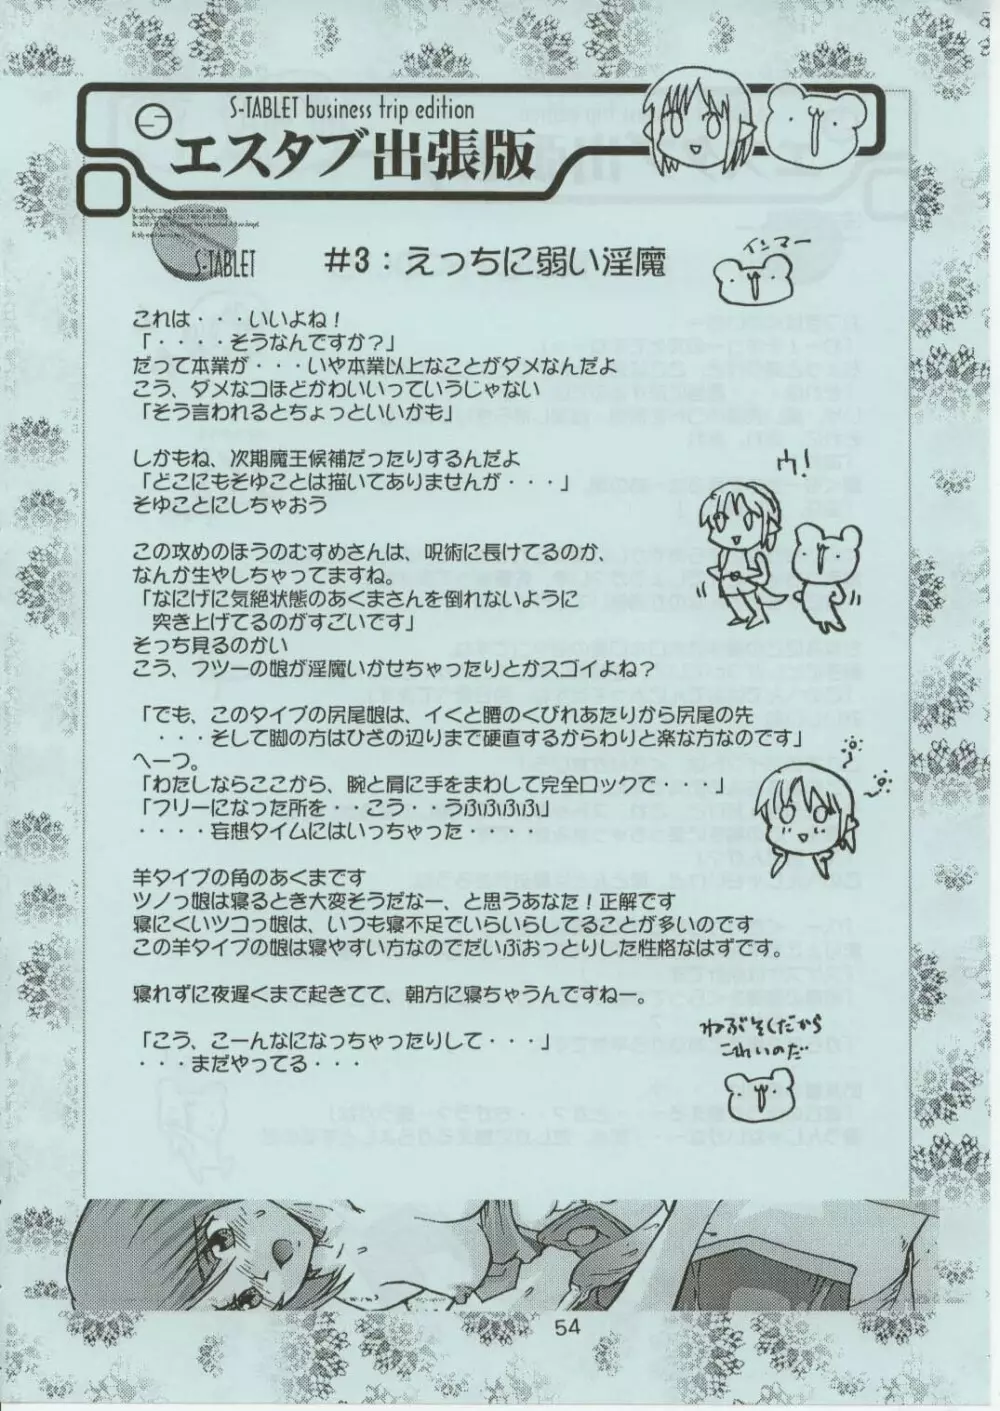 S-TABLET business trip edition
エスタブ出張版
S-TABLET
#3：えっちに弱い淫魔
インマー
これは・・・いいよね！
「・・・・そうなんですか？」
だって本業が・・・いや本業以上なことがダメなんだよ
こう、ダメなコほどかわいいっていうじゃない
「そう言われるとちょっといいかも」
しかもね、次期魔王候補だったりするんだよ
「どこにもそゆことは描いてありませんが・・・」
そゆことにしちゃおう
ウ！
この攻めのほうのむすめさんは、呪術に長けてるのか、
なんか生やしちゃってますね。
「なにげに気絶状態のあくまさんを倒れないように
突き上げてるのがすごいです」
そっち見るのかい
こう、フツーの娘が淫魔いかせちゃったりとかスゴイよね？
「でも、このタイプの尻尾娘は、イくと腰のくびれあたりから尻尾の先
・・・そして脚の方はひざの辺りまで硬直するからわりと楽な方なのです」
へーっ。
「わたしならここから、腕と肩に手をまわして完全ロックで・・・・」
「フリーになった所を・・こう・・うふふふふ」
・・・・妄想タイムにはいっちゃった・・・・
羊タイプの角のあくまです
ツノっ娘は寝るとき大変そうだなー、と思うあなた！正解です
寝にくいツコっ娘は、いつも寝不足でいらいらしてることが多いのです
この羊タイプの娘は寝やすい方なのでだいぶおっとりした性格なはずです。
寝れずに夜遅くまで起きてて、朝方に寝ちゃうんですねー。
「こう、こーんなになっちゃったりして・・・・」
・・・まだやってる・・・
ねぶそくだから
これいのだ
54